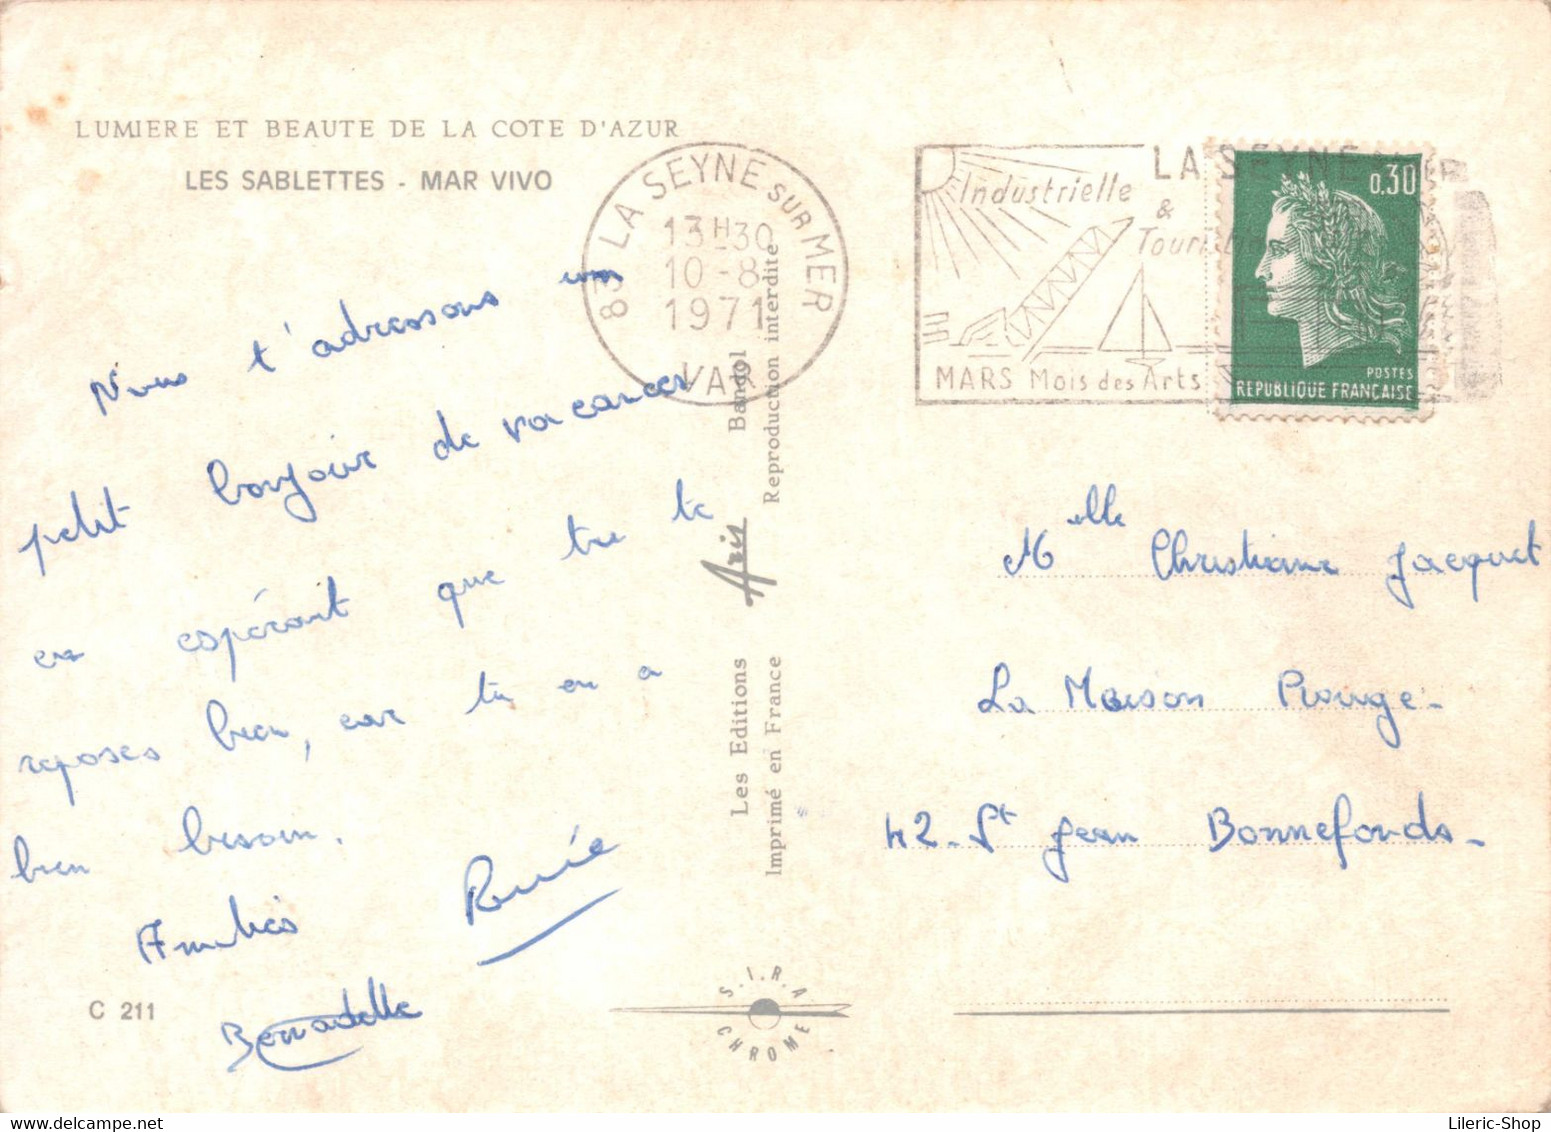 LUMIERE ET BEAUTE DE LA COTE D'AZUR
LES SABLETTES - MAR VIVO
Nous t'adressons un
petit bonjour de vacances
en espérant que tu te
reposes bien, car tu en a
bien besoin.
Amitiés Renée
Bernadette
C 211
83 LA SEYNE SUR MER
13H30
10-8
1971
VAR
LA SEYNE
Industrielle
&
MARS Mois des Arts
0,30
POSTES
REPUBLIQUE FRANÇAISE
Les Editions Aris Bandol
Imprimé en France Reproduction interdite
S.I.R.A
CHROME
Melle Christiane Jacquet
La Maison Rouge-
42- St Jean Bonnefonds-
Lileric-Shop